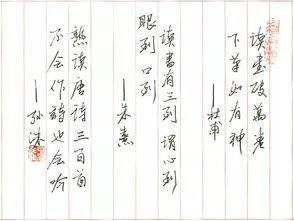 读书破万卷
下笔如有神
——杜甫
读书有三到 谓心到
眼到 口到
——朱熹
熟读唐诗三百首
不会作诗也会吟
——孙洙